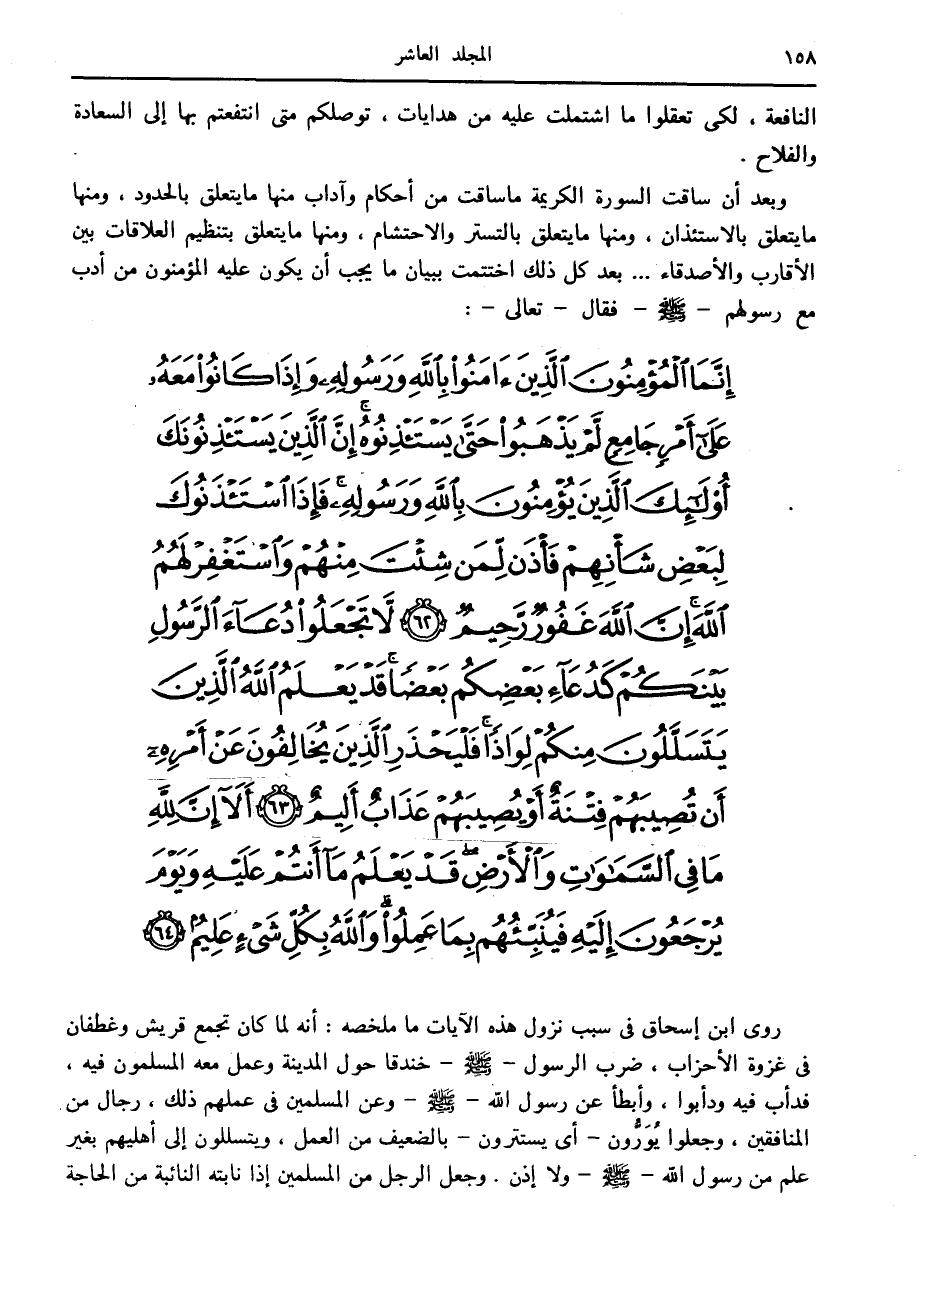 ١٥٨ المجلد العاشر
النافعة ، لكى تعقلوا ما اشتملت عليه من هدايات ، توصلكم متى انتفعتم بها إلى السعادة
والفلاح .
وبعد أن ساقت السورة الكريمة ماساقت من أحكام وآداب منها مايتعلق بالحدود ، ومنها
مايتعلق بالاستئذان ، ومنها مايتعلق بالتستر والاحتشام ، ومنها مايتعلق بتنظيم العلاقات بين
الأقارب والأصدقاء ... بعد كل ذلك اختتمت ببيان ما يجب أن يكون عليه المؤمنون من أدب
مع رسولهم – ﷺ – فقال – تعالى – :
إِنَّمَا ٱلْمُؤْمِنُونَ ٱلَّذِينَ ءَامَنُوا۟ بِٱللَّهِ وَرَسُولِهِۦ وَإِذَا كَانُوا۟ مَعَهُۥ
عَلَىٰٓ أَمْرٍ جَامِعٍ لَّمْ يَذْهَبُوا۟ حَتَّىٰ يَسْتَـْٔذِنُوهُ ۚ إِنَّ ٱلَّذِينَ يَسْتَـْٔذِنُونَكَ
أُو۟لَـٰٓئِكَ ٱلَّذِينَ يُؤْمِنُونَ بِٱللَّهِ وَرَسُولِهِۦ ۚ فَإِذَا ٱسْتَـْٔذَنُوكَ
لِبَعْضِ شَأْنِهِمْ فَأْذَن لِّمَن شِئْتَ مِنْهُمْ وَٱسْتَغْفِرْ لَهُمُ
ٱللَّهَ ۚ إِنَّ ٱللَّهَ غَفُورٌ رَّحِيمٌ ٦٢ لَّا تَجْعَلُوا۟ دُعَآءَ ٱلرَّسُولِ
بَيْنَكُمْ كَدُعَآءِ بَعْضِكُم بَعْضًا ۚ قَدْ يَعْلَمُ ٱللَّهُ ٱلَّذِينَ
يَتَسَلَّلُونَ مِنكُمْ لِوَاذًا ۚ فَلْيَحْذَرِ ٱلَّذِينَ يُخَالِفُونَ عَنْ أَمْرِهِۦٓ
أَن تُصِيبَهُمْ فِتْنَةٌ أَوْ يُصِيبَهُمْ عَذَابٌ أَلِيمٌ ٦٣ أَلَآ إِنَّ لِلَّهِ
مَا فِى ٱلسَّمَـٰوَٰتِ وَٱلْأَرْضِ ۖ قَدْ يَعْلَمُ مَآ أَنتُمْ عَلَيْهِ وَيَوْمَ
يُرْجَعُونَ إِلَيْهِ فَيُنَبِّئُهُم بِمَا عَمِلُوا۟ ۗ وَٱللَّهُ بِكُلِّ شَىْءٍ عَلِيمٌۢ ٦٤
روى ابن إسحاق فى سبب نزول هذه الآيات ما ملخصه : أنه لما كان تجمع قريش وغطفان
فى غزوة الأحزاب ، ضرب الرسول – ﷺ – خندقا حول المدينة وعمل معه المسلمون فيه ،
فدأب فيه ودأبوا ، وأبطأ عن رسول الله – ﷺ – وعن المسلمين فى عملهم ذلك ، رجال من
المنافقين ، وجعلوا يُوَرُّون – أى يستترون – بالضعيف من العمل ، ويتسللون إلى أهليهم بغير
علم من رسول الله – ﷺ – ولا إذن . وجعل الرجل من المسلمين إذا نابته النائبة من الحاجة